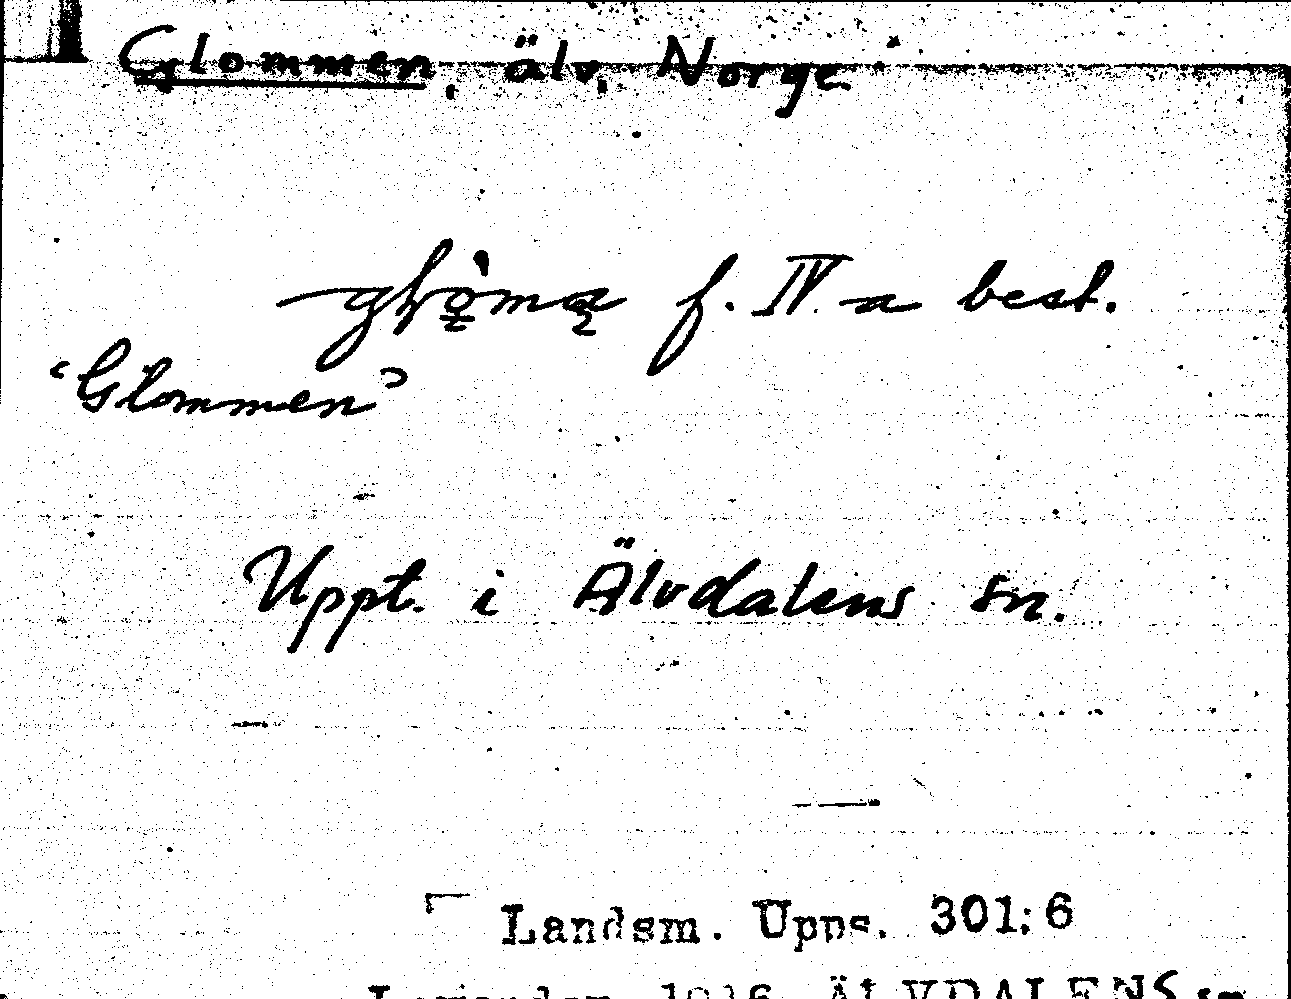 Glommen, älv, Norge
f. IV a best.
"Glommen"
Uppt. i Älvdalens sn.
Landsm. Upps. 301:6
ÄLVDALENS sn